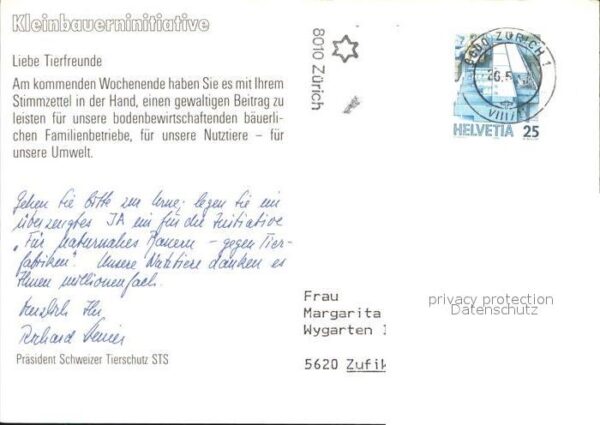 Kleinbauerninitiative
Liebe Tierfreunde
Am kommenden Wochenende haben Sie es mit Ihrem
Stimmzettel in der Hand, einen gewaltigen Beitrag zu
leisten für unsere bodenbewirtschaftenden bäuerli-
chen Familienbetriebe, für unsere Nutztiere – für
unsere Umwelt.
Gehen Sie bitte zur Urne; legen Sie ein
überzeugtes JA ein für die Initiative
„Für naturnahes Bauern – gegen Tier-
fabriken". Unsere Nutztiere danken es
Ihnen millionenfach.
Herzlich Ihr
Präsident Schweizer Tierschutz STS
8010 Zürich
8600 ZÜRICH 1
26.5.
VIII
HELVETIA 25
Frau
Margarita
Wygarten
5620 Zufik
privacy protection
Datenschutz